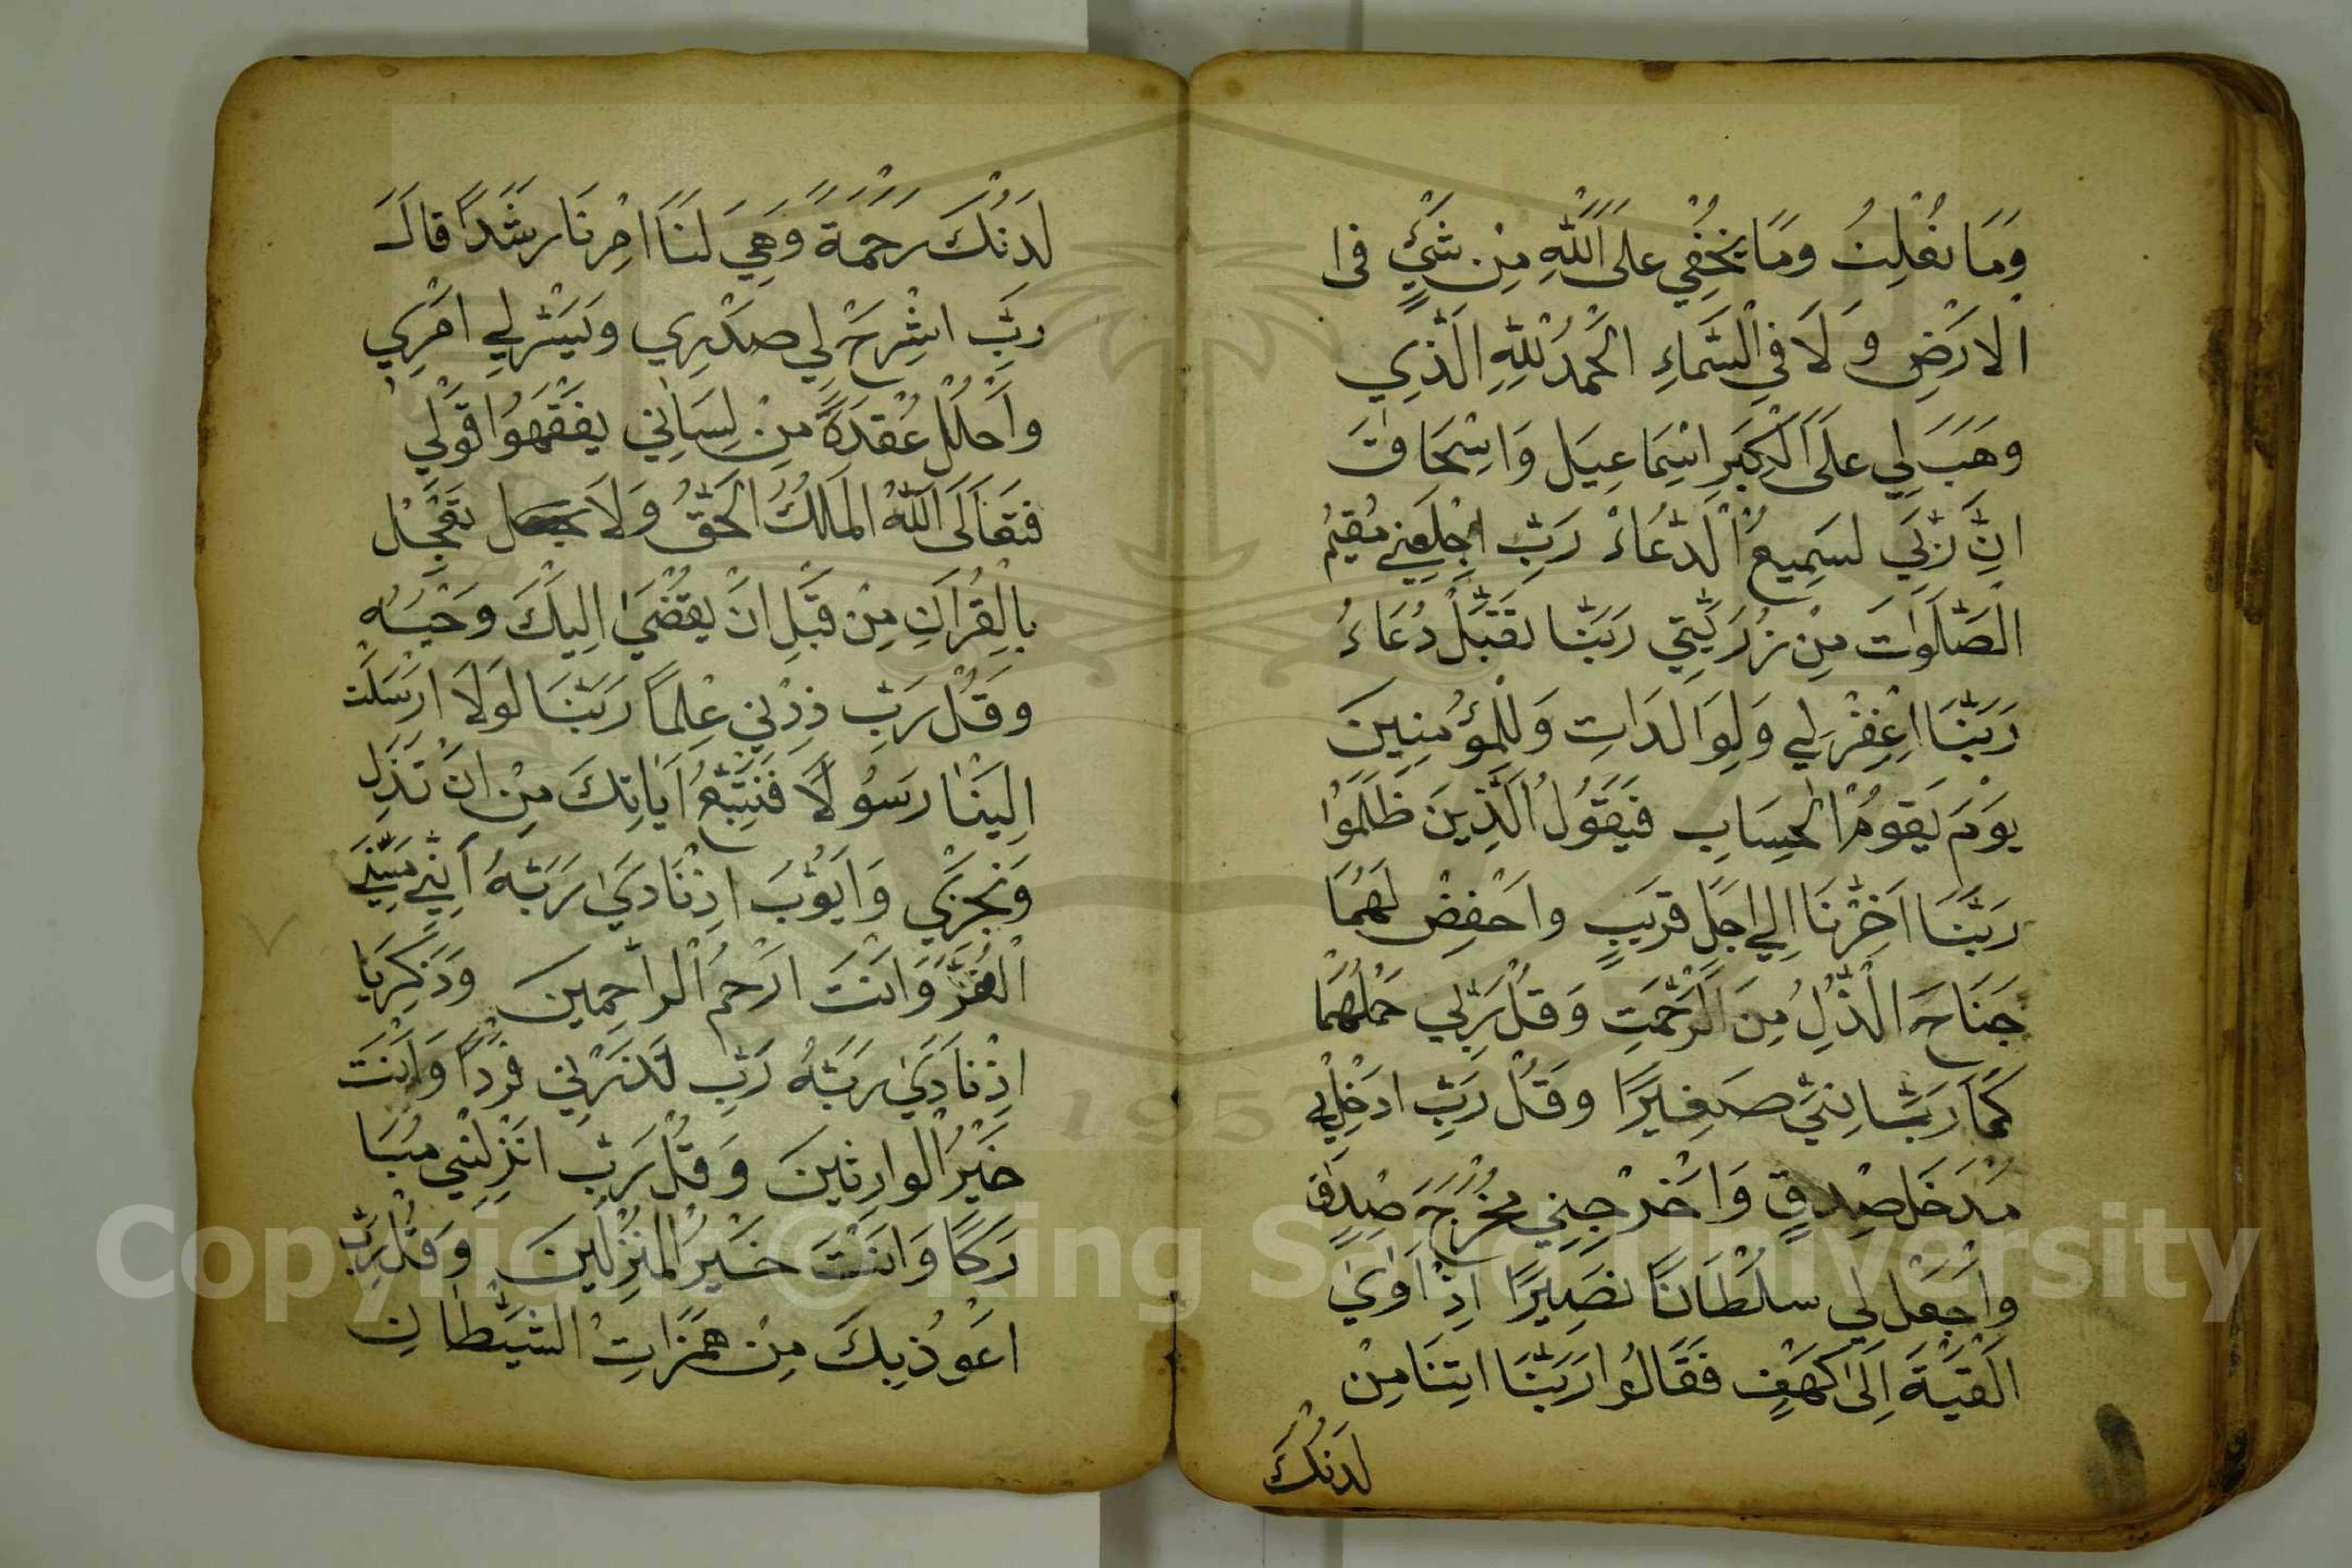 وَمَا نُعْلِنُ وَمَا يَخْفِي عَلَى اللّٰهِ مِنْ شَيْءٍ فى ا
الْارَضِ وَ لَا فِي السَّمَاءِ الْحَمْدُ لِلّٰهِ الَّذِي
وَهَبَ لِي عَلَى الْكِبَرِ اسْمَاعِيَل وَاسْحَاقَ
انَّ رَبِّي لسَمِيعُ الْدُّعَاءْ رَبِّ اجْعَلْنِي مُقِيمُ
الْصَّلَوٰتَ مِنْ زُرِّيَّتِي رَبَّنَا تقَبَّلْ دُعَاءُ
رَبَّنَا اغْفِرْ لِي وَلِوَالدَاتِ وَلِلْمُؤْمِنِينَ
يَوْمَ يَقُومُ الْحِسَابِ فَيَقُولُ الَّذِينَ ظَلَمُوْا
رَبَّنَا اَخِّرْنَا اِلٰي اجَلٍ قرَيبٍ واحْفِضْ لَهُمَا
جَنَاحَ الْذُّلِ مِنَ الرَّحْمَتِ وَقُلْ رَبِّي حَمْلْهُمَا
كَمَا رَبَّيَانِيَّ صَغِيَرًا وقُلْ رَبِّ ادَخِلْنِي
مُدْخَلَ صِدْقٍ وَاخْرِجْنِي مُخْرَجَ صِدْقٍ
وَاجْعَلْ لِي سلْطَانًا نصَيِرًا اِذْ اَوٰيٰ
الْفتْيَةَ اِلَىٰ كَهْفٍ فَقَالُوا رَبَّنَا اتِنَا مِنْ
لَدنْكَ
لَدنْكَ رَحْمَةً وَهَيِّ لَنَا امْرِنَا رشَدًا قَالَ
ربِّ اشْرِحْ لِي صَدْرِي وَيَسِّرْ لِي امْرِي
واحْلُلْ عُقْدَةً مِنْ لِسَانِي يفْقَهُوا قَوْلِي
فَتَعَالَى اللّٰهُ الْمَالِكُ الْحَقُّ وَلَا تعْجَلْ
بِالْقُرْاَنِ مِنْ قَبْلِ انْ يقْضَىٰ اِلَيْكَ وحْيَهُ
وَقُلْ رَبِّ ذِدْنِي عِلمًا رَبَّنَا لَوْلَا ارْسَلْت
اِلَيْنَا رسَوُلًا فَنَتَّبِعُ اَيَاتِكَ مِنْ انْ نَذِل
وَنَجْزَىٰ وَايَّوُبَ اذْنَادَىٰ رَبَّهُ اَنِّي مَسَّنِي
الْضُرُّ وَانْتَ ارْحمُ الْرَاحِمِينَ وَذَكَرِيَا
اذْنَادَىٰ رَبَّهُ رَبِّ لَاتذَرْنِي فَرْدًا وَانْتَ
خَيْرُ الْوارِثينَ وَقُلْ رَبِّ انْزِلْنِي مُبَا
رَكًا وَانْتَ خَيْرُ الْمُنْزِلينَ وَقُلْ رَبِّ
اعَوُذ بِكَ مِنْ هَمَزَاتِ الشَّيْطَانِ
Copyright © King Saud University
1957